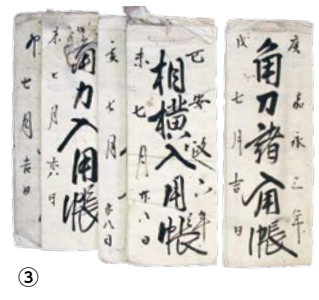 庚嘉永三年
角力諸入用帳
戌七月吉日
己安政六年
相撲入用帳
未七月廿八日
亥七月廿八日
角力入用帳
未七月廿八日
卯七月吉日
③